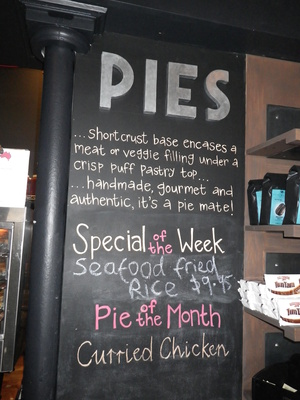 PIES
...shortcrust base encases a
meat or veggie filling under a
crisp puff pastry top...
...handmade, gourmet and
authentic, it's a pie mate!
Special of the Week
Seafood fried
Rice $9.95
Pie of the Month
Curried Chicken
TimTam